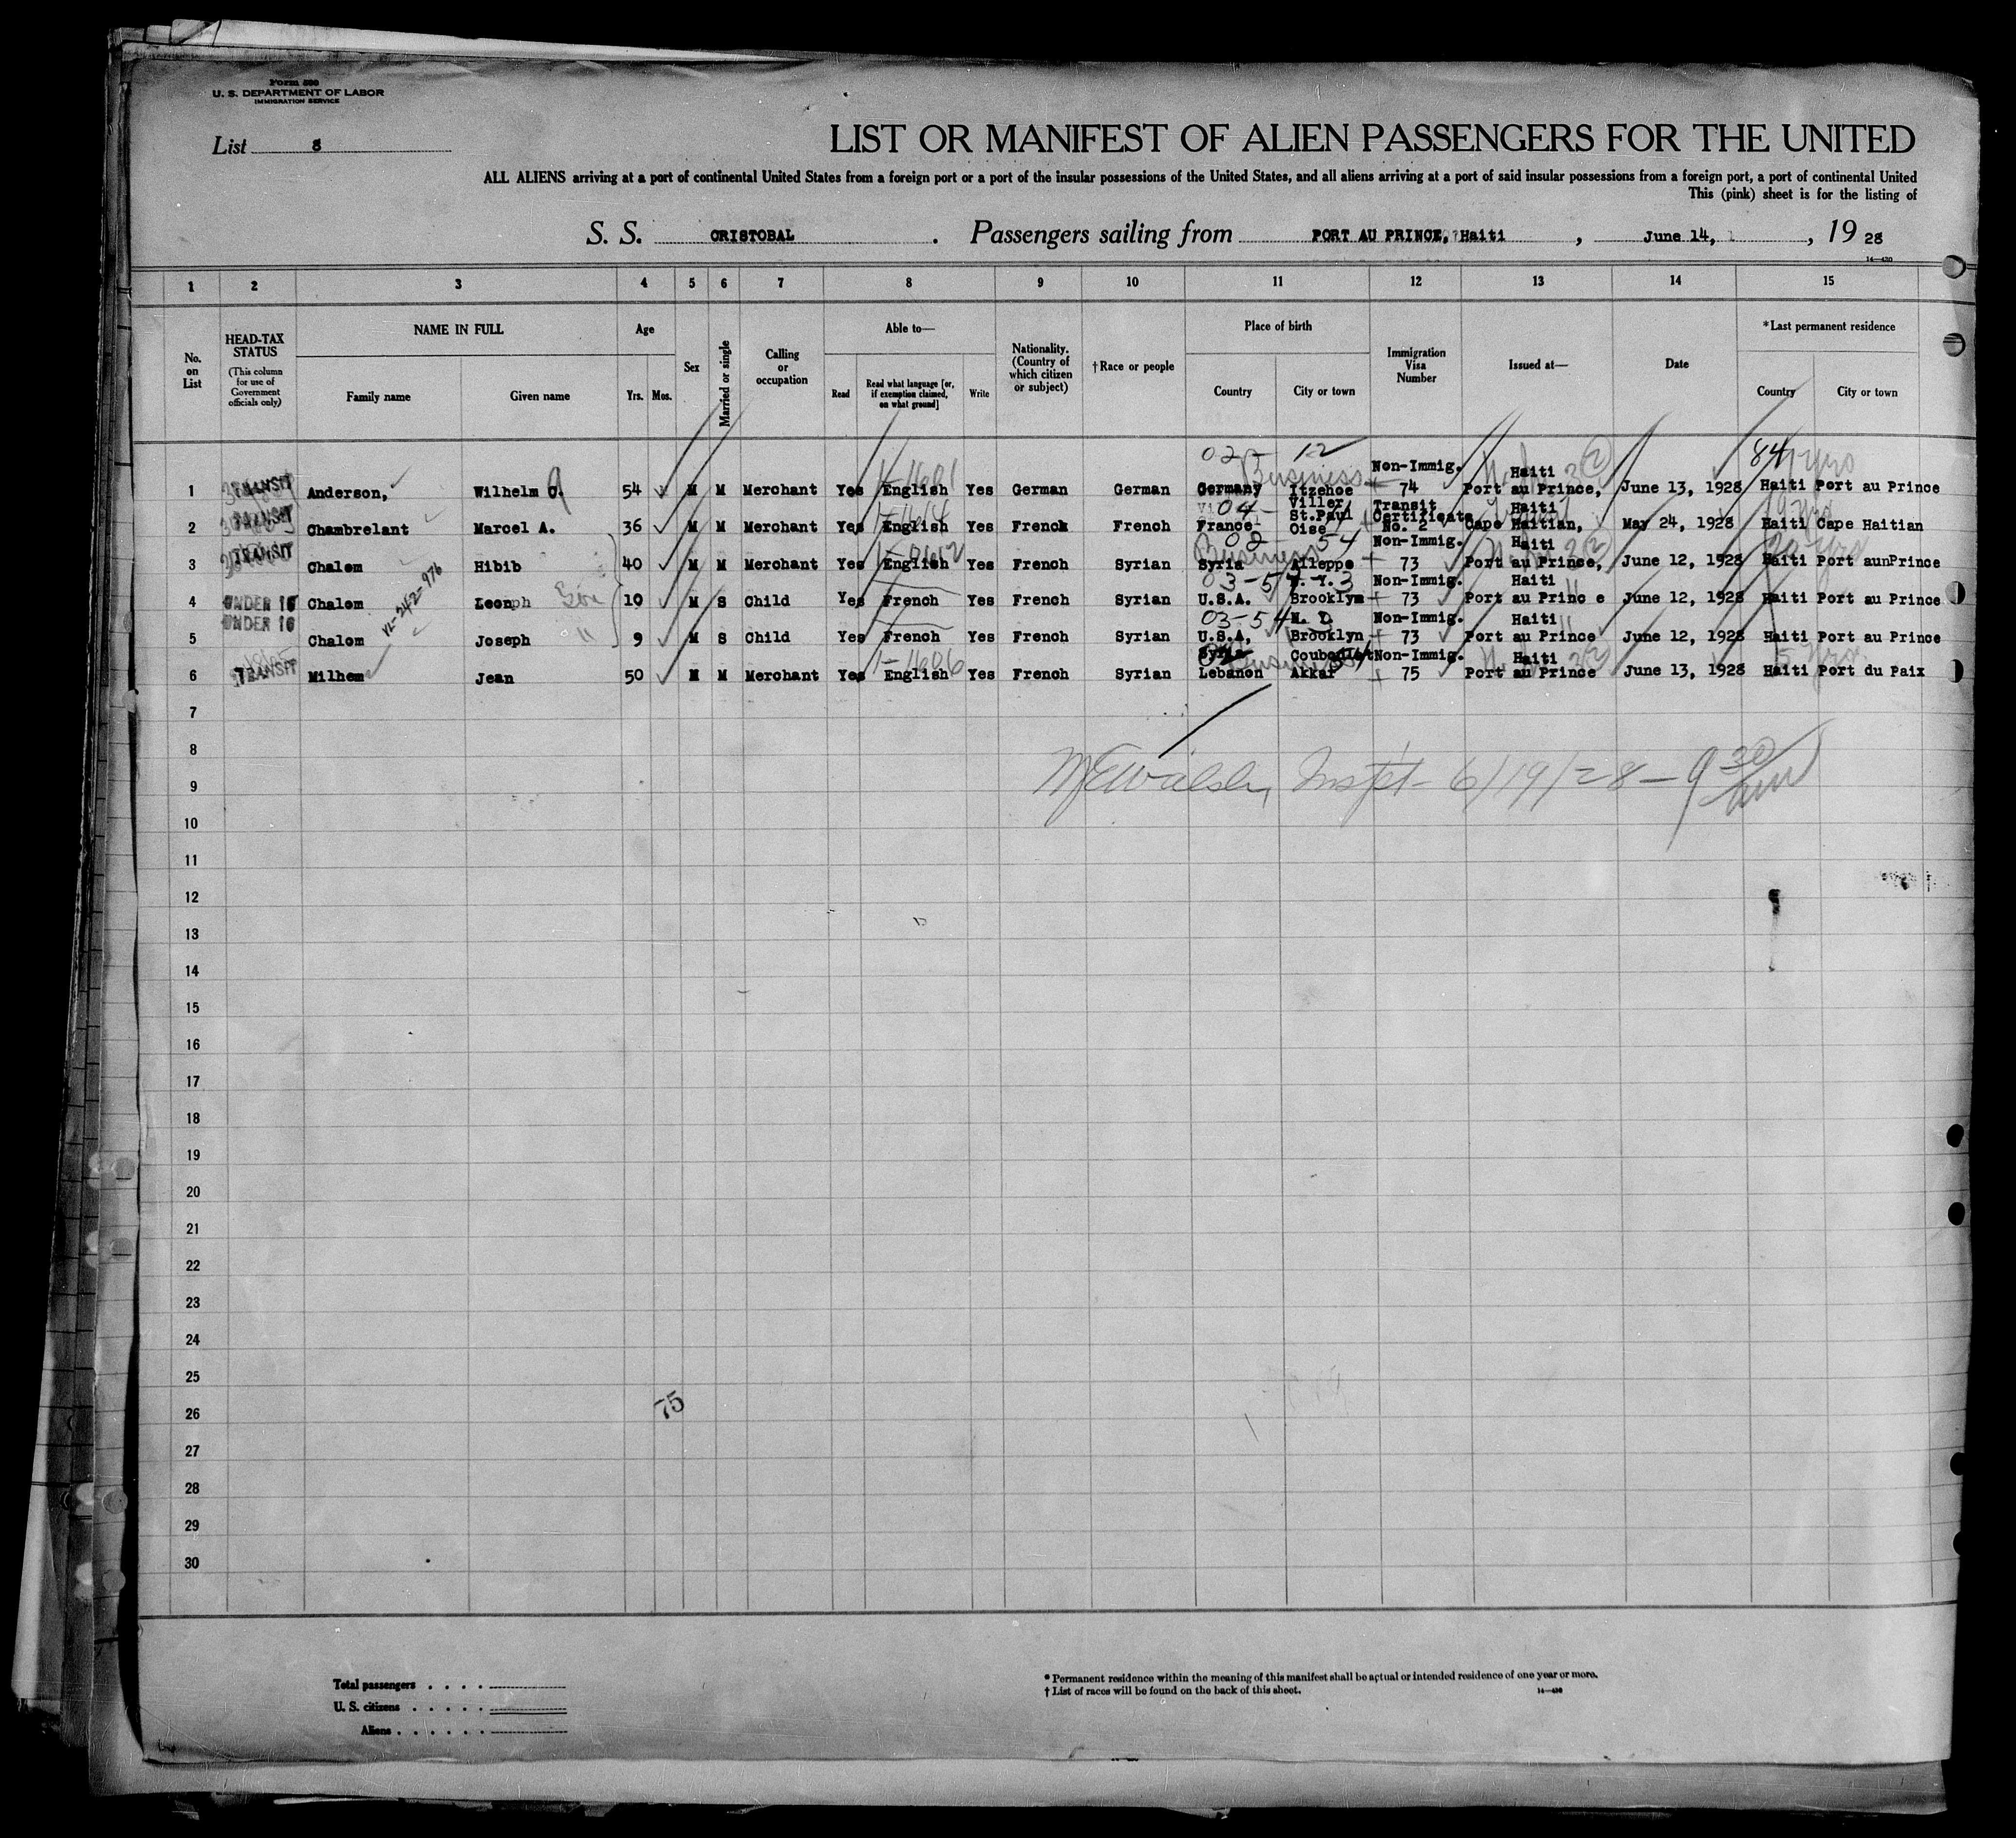 Form 500
U. S. DEPARTMENT OF LABOR
IMMIGRATION SERVICE
List 8
LIST OR MANIFEST OF ALIEN PASSENGERS FOR THE UNITED
ALL ALIENS arriving at a port of continental United States from a foreign port or a port of the insular possessions of the United States, and all aliens arriving at a port of said insular possessions from a foreign port, a port of continental United
This (pink) sheet is for the listing of
S. S. CRISTOBAL. Passengers sailing from PORT AU PRINCE, Haiti, June 14, , 19 28
14—430
1 2 3 4 5 6 7 8 9 10 11 12 13 14 15
No. on List HEAD-TAX STATUS (This column for use of Government officials only) NAME IN FULL Family name Given name Age Yrs. Mos. Sex Married or single Calling or occupation Able to— Read Read what language [or, if exemption claimed, on what ground] Write Nationality. (Country of which citizen or subject) †Race or people Place of birth Country City or town Immigration Visa Number Issued at— Date *Last permanent residence Country City or town
02- 12 84
1 TRANSIT Anderson, Wilhelm O. 54 M M Merchant Yes 1-1601 English Yes German German Business Germany Itzehoe Non-Immig. 74 Haiti Port au Prince, June 13, 1928 Haiti Port au Prince
2 TRANSIT Chambrelant Marcel A. 36 M M Merchant Yes English Yes French French 04- France Viller St.Paul Oise Transit Certificate No. 2 Haiti Cape Haitian, May 24, 1928 Haiti Cape Haitian
3 TRANSIT Chalom Hibib 40 M M Merchant Yes English Yes French Syrian 02- 54 Business Syria Alleppo Non-Immig. 73 Haiti Port au Prince, June 12, 1928 Haiti Port aunPrince
4 UNDER 16 Chalom VL-242-976 Leonph 10 M S Child Yes French Yes French Syrian 03-54 U.S.A. N. Y. Brooklym Non-Immig. 73 Haiti Port au Princ e June 12, 1928 Haiti Port au Prince
5 UNDER 16 Chalom Joseph " 9 M S Child Yes French Yes French Syrian 03-54 U.S.A, Brooklyn Non-Immig. 73 Haiti Port au Prince June 12, 1928 Haiti Port au Prince
6 TRANSIT Milhem Jean 50 M M Merchant Yes 1-1606 English Yes French Syrian Syria Business Lebanon Akkar Non-Immig. 75 Haiti Port au Prince June 13, 1928 Haiti Port du Paix
7
8
M E Walsh, Inspt- 6/19/28 - 9 30 am
9
10
11
12
13
14
15
16
17
18
19
20
21
22
23
24
25
75
26
27
28
29
30
Total passengers . . . .
U. S. citizens . . . . .
Aliens . . . . . .
* Permanent residence within the meaning of this manifest shall be actual or intended residence of one year or more.
† List of races will be found on the back of this sheet.
14—430